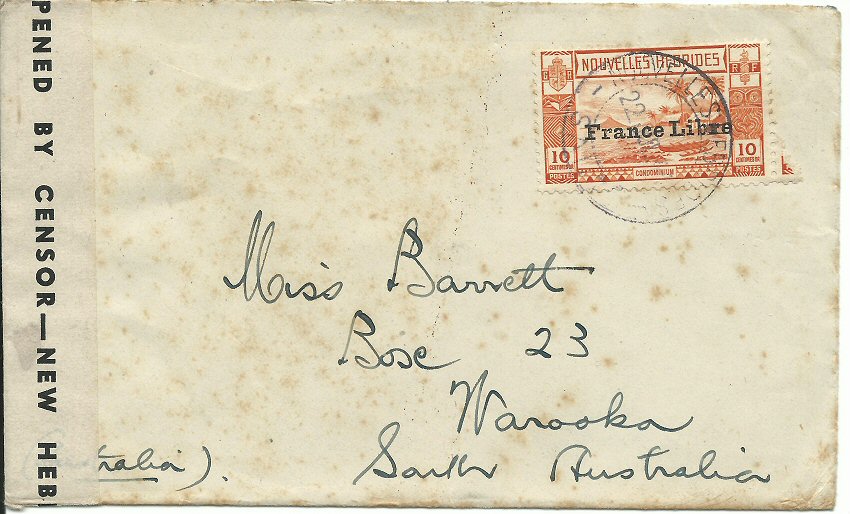 PENED BY CENSOR—NEW HEB
NOUVELLES HEBRIDES
G R
R F
France Libre
10
CENTIMES OR
POSTES
10
CENTIMES OR
POSTES
CONDOMINIUM
NOUVELLES
22
Miss Barrett
Box 23
Warooka
South Australia
tralia).